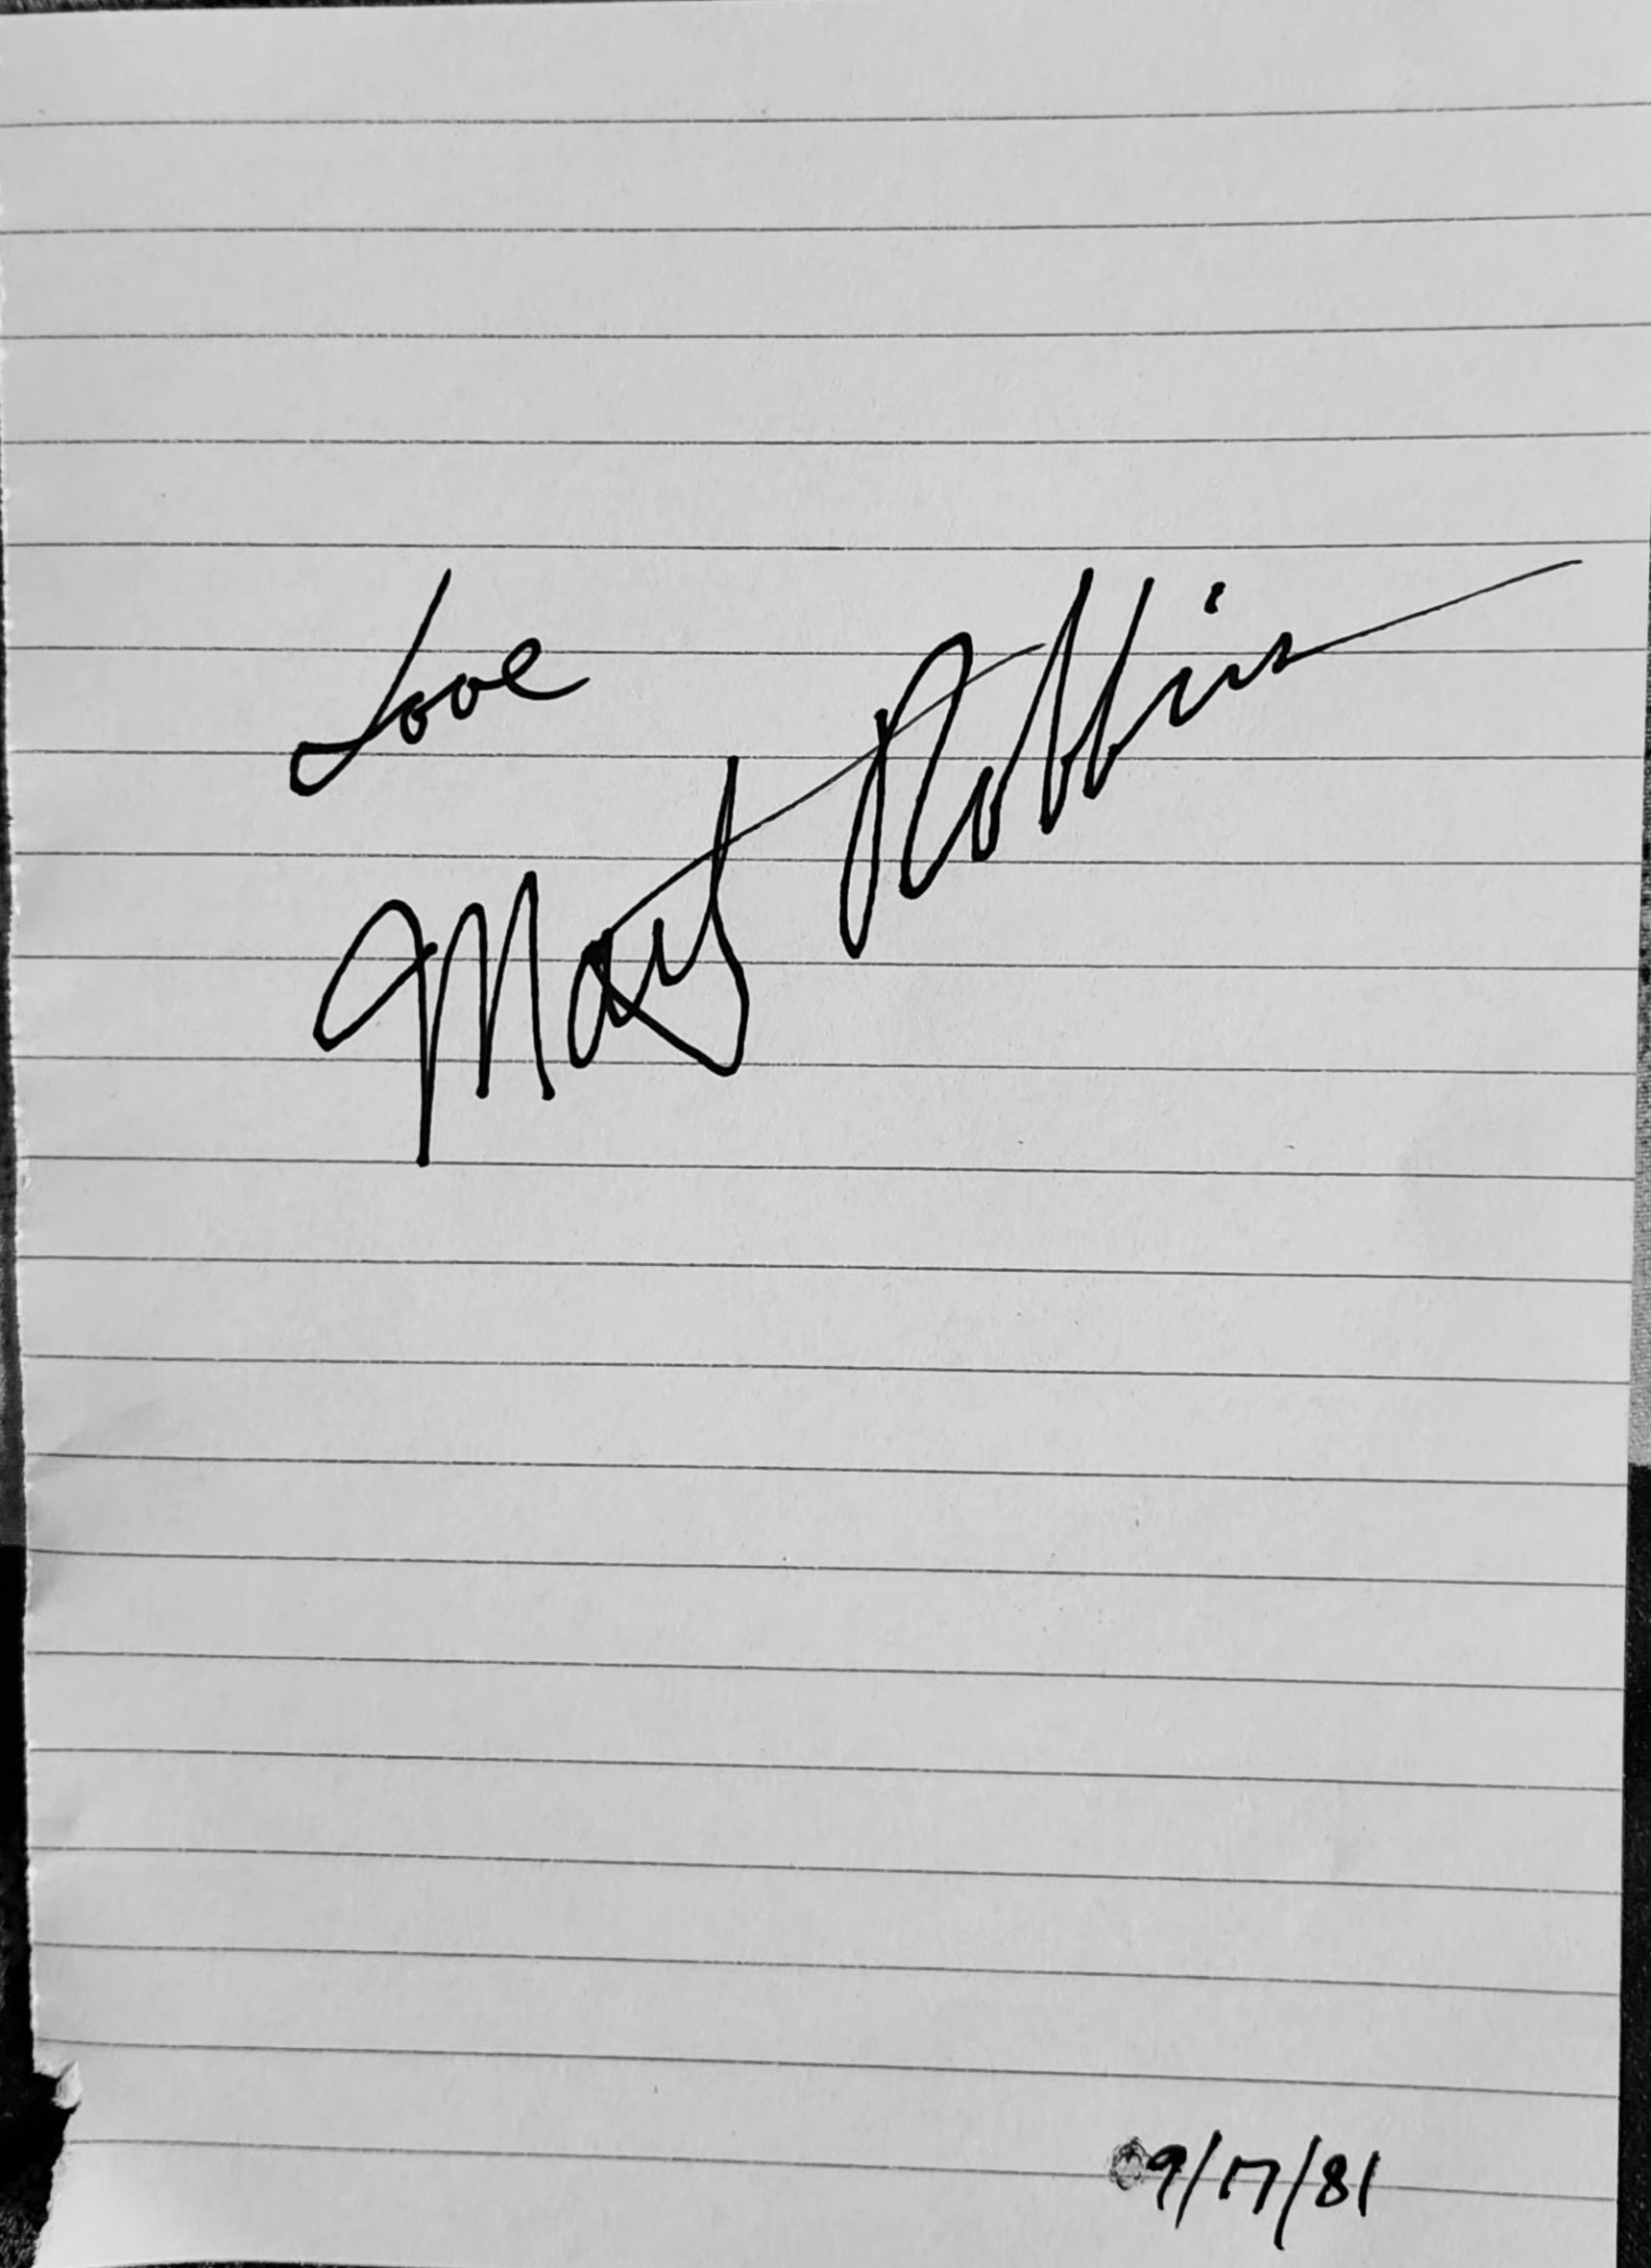 Love
Marty Robbins
9/17/81